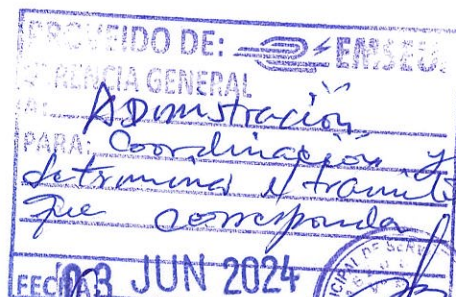 PROVEIDO DE: EMSEU
GERENCIA GENERAL
A: Administración
PARA: Coordinación y
determinar el tramite
que corresponda
FECHA: 03 JUN 2024
CIPAL DE SER